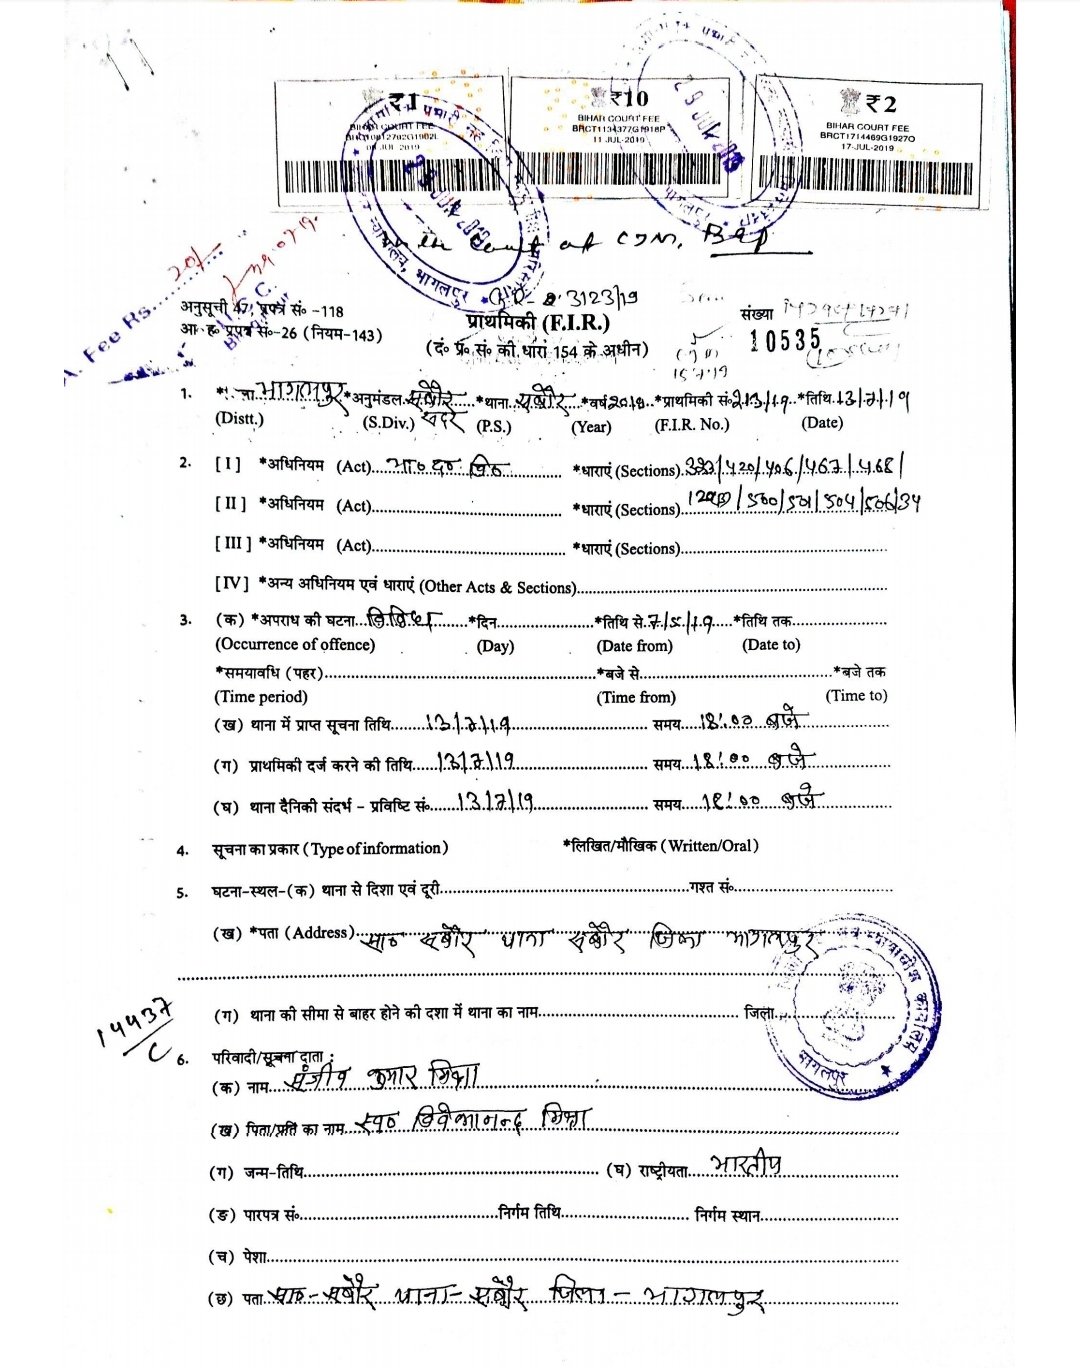 ₹1
₹10
₹2
BIHAR COURT FEE
BIHAR COURT FEE
BRCT1134377G1918P
11-JUL-2019
BIHAR COURT FEE
BRCT1714469G1927O
17-JUL-2019
In the Court of CJM, Bgp
A. Fee Rs. 20/-
GR- 3123/19
अनुसूची 47, प्रपत्र सं० -118
आ० ह० प्रपत्र सं०-26 (नियम-143)
प्राथमिकी (F.I.R.)
(दं० प्र० सं० की धारा 154 के अधीन)
संख्या
10535
15/7/19
1. *जिला भागलपुर *अनुमंडल सदर *थाना सबौर *वर्ष 2019 *प्राथमिकी सं० 213/19 *तिथि 13/7/19
(Distt.) (S.Div.) (P.S.) (Year) (F.I.R. No.) (Date)
2. [ I ] *अधिनियम (Act) भा० द० वि० *धाराएं (Sections) 323/420/406/467/468/
[ II ] *अधिनियम (Act) *धाराएं (Sections) 120(B)/500/501/504/506/34
[ III ] *अधिनियम (Act) *धाराएं (Sections)
[IV] *अन्य अधिनियम एवं धाराएं (Other Acts & Sections)
3. (क) *अपराध की घटना *दिन *तिथि से 7/5/19 *तिथि तक
(Occurrence of offence) (Day) (Date from) (Date to)
*समयावधि (पहर) *बजे से *बजे तक
(Time period) (Time from) (Time to)
(ख) थाना में प्राप्त सूचना तिथि 13/7/19 समय 18:00 बजे
(ग) प्राथमिकी दर्ज करने की तिथि 13/7/19 समय 18:00 बजे
(घ) थाना दैनिकी संदर्भ - प्रविष्टि सं० 13/7/19 समय 18:00 बजे
4. सूचना का प्रकार (Type of information) *लिखित/मौखिक (Written/Oral)
5. घटना-स्थल-(क) थाना से दिशा एवं दूरी गश्त सं०
(ख) *पता (Address) सा० सबौर थाना सबौर जिला भागलपुर
(ग) थाना की सीमा से बाहर होने की दशा में थाना का नाम जिला
14437/C
6. परिवादी/सूचना दाता :
(क) नाम संजीव कुमार मिश्रा
(ख) पिता/प्रति का नाम स्व० विवेकानन्द मिश्रा
(ग) जन्म-तिथि (घ) राष्ट्रीयता भारतीय
(ङ) पारपत्र सं० निर्गम तिथि निर्गम स्थान
(च) पेशा
(छ) पता सा०- सबौर थाना- सबौर जिला- भागलपुर